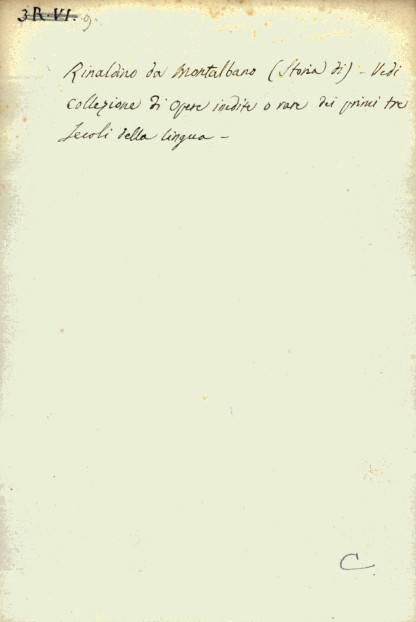 3 R. VI. 9.
Rinaldino da Montalbano (Storia di) - Vedi
Collezione di opere inedite o rare dei primi tre
Secoli della lingua -
C.